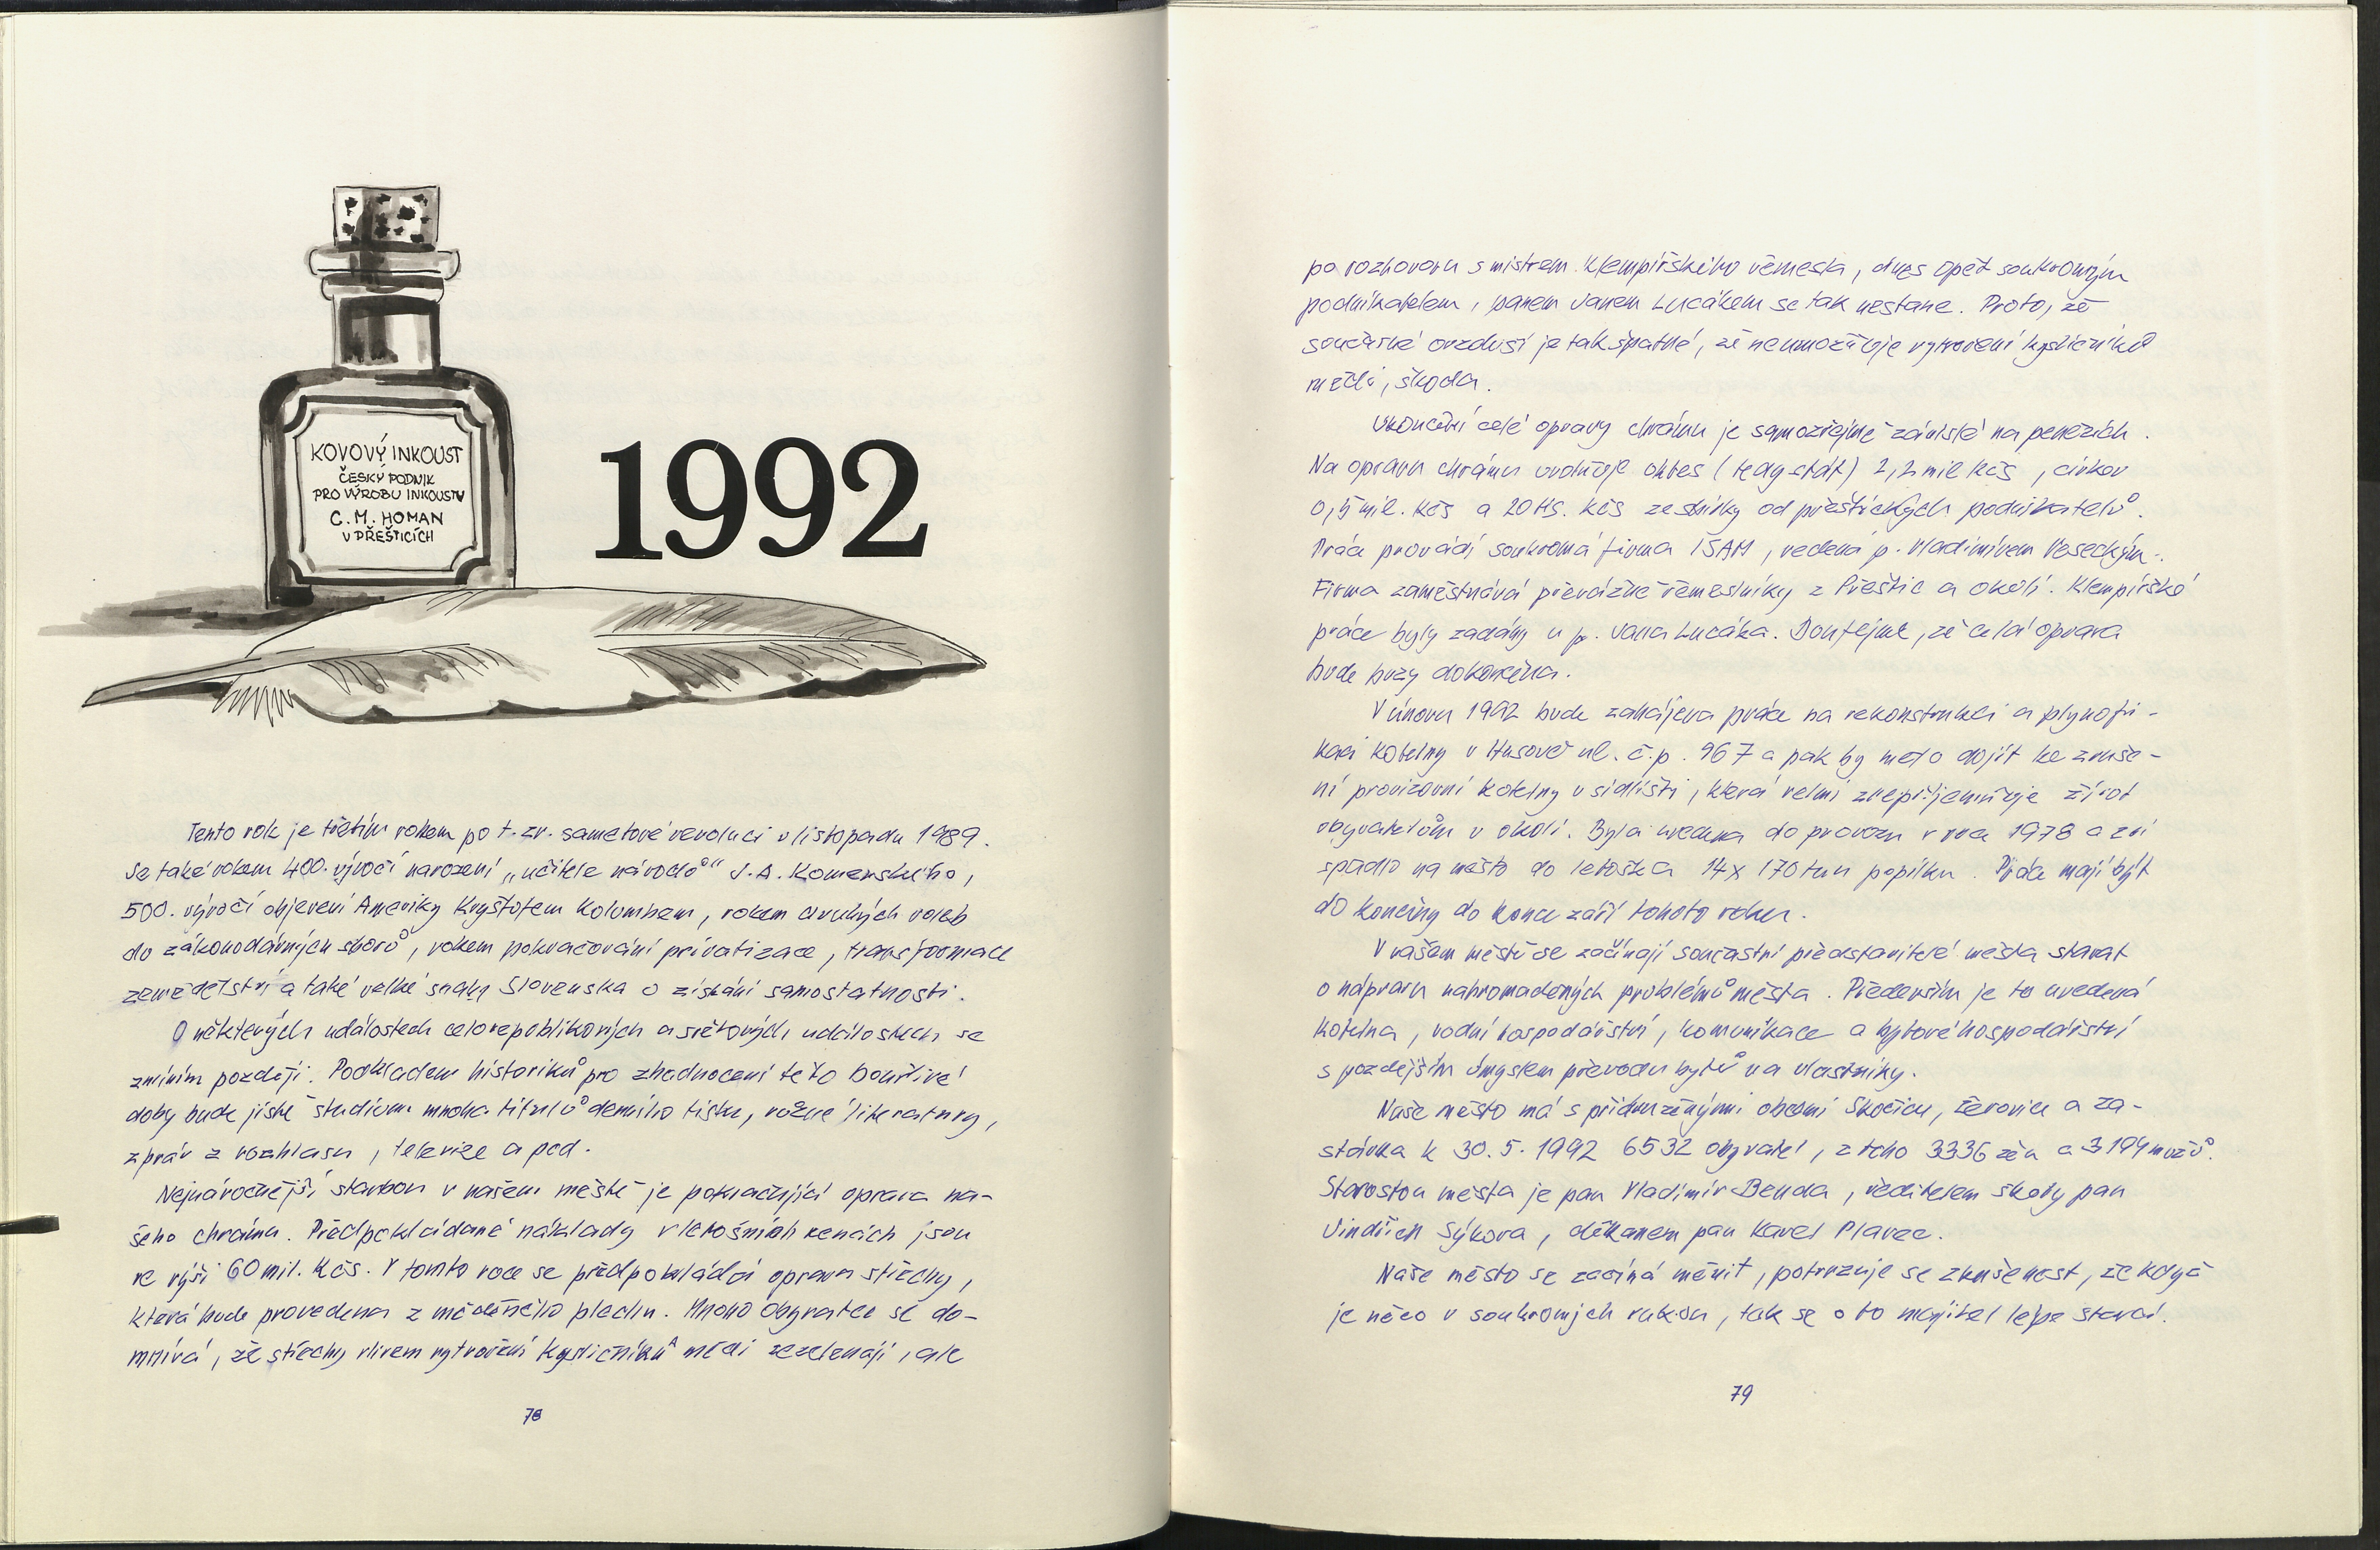 KOVOVÝ INKOUST
ČESKÝ PODNIK
PRO VÝROBU INKOUSTU
C. M. HOMAN
V PŘEŠTICÍCH
1992
Tento rok je třetím rokem po t. zv. sametové revoluci v listopadu 1989.
Je také rokem 400. výročí narození „učitele národů" J. A. Komenského,
500. výročí objevení Ameriky Kryštofem Kolumbem, rokem druhých voleb
do zákonodárných sborů, rokem pokračování privatizace, transformace
zemědělství a také velké snahy Slovenska o získání samostatnosti.
O některých událostech celorepublikových a světových událostech se
zmíním později. Podkladem historiků pro zhodnocení této bouřlivé
doby bude jistě studium mnoha titulů denního tisku, různé literatury,
zpráv z rozhlasu, televize a pod.
Nejnáročnější stavbou v našem městě je pokračující oprava na-
šeho chrámu. Předpokládané náklady v letošních cenách jsou
ve výši 60 mil. Kčs. V tomto roce se předpokládá oprava střechy,
která bude provedena z měděného plechu. Mnoho obyvatel se do-
mnívá, že střechy vlivem vytvoření kysličníků mědi zezelenají, ale
78
po rozhovoru s mistrem klempířského řemesla, dnes opět soukromým
podnikatelem, panem Janem Lucákem se tak nestane. Proto, že
současné ovzduší je tak špatné, že neumožňuje vytvoření kysličníků
mědi, škoda.
Ukončení celé opravy chrámu je samozřejmě závislé na penězích.
Na opravu chrámu uvolňuje okres (resp. stát) 2,2 mil Kčs, církev
0,5 mil. Kčs a 20 tis. Kčs ze sbírky od přeštických podnikatelů.
Práce provádí soukromá firma IŠAM, vedená p. Vladimírem Veseckým.
Firma zaměstnává převážně řemeslníky z Přeštic a okolí. Klempířské
práce byly zadány u p. Jana Lucáka. Doufejme, že celá oprava
bude brzy dokončena.
V únoru 1992 bude zahájena práce na rekonstrukci a plynofi-
kaci kotelny v Husově ul. č.p. 967 a pak by mělo dojít ke zruše-
ní provizorní kotelny v sídlišti, která velmi znepříjemňuje život
obyvatelům v okolí. Byla uvedena do provozu v roce 1978 a z ní
spadlo na město do letoška 14x 170 tun popílku. Práce mají být
dokončeny do konce září tohoto roku.
V našem městě se začínají současní představitelé města starat
o nápravu nahromaděných problémů města. Především je to uvedená
kotelna, vodní hospodářství, komunikace a bytové hospodářství
s pozdějším úmyslem převodu bytů na vlastníky.
Naše město má s přidruženými obcemi Skočice, Žerovice a Za-
stávka k 30. 5. 1992 6532 obyvatel, z toho 3336 žen a 3194 mužů.
Starostou města je pan Vladimír Benda, ředitelem školy pan
Jindřich Sýkora, děkanem pan Karel Plavec.
Naše město se začíná měnit, potvrzuje se zkušenost, že když
je něco v soukromých rukou, tak se o to majitel lépe stará.
79